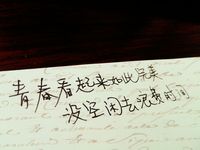 青春看起来如此完美
没空闲去浪费时间